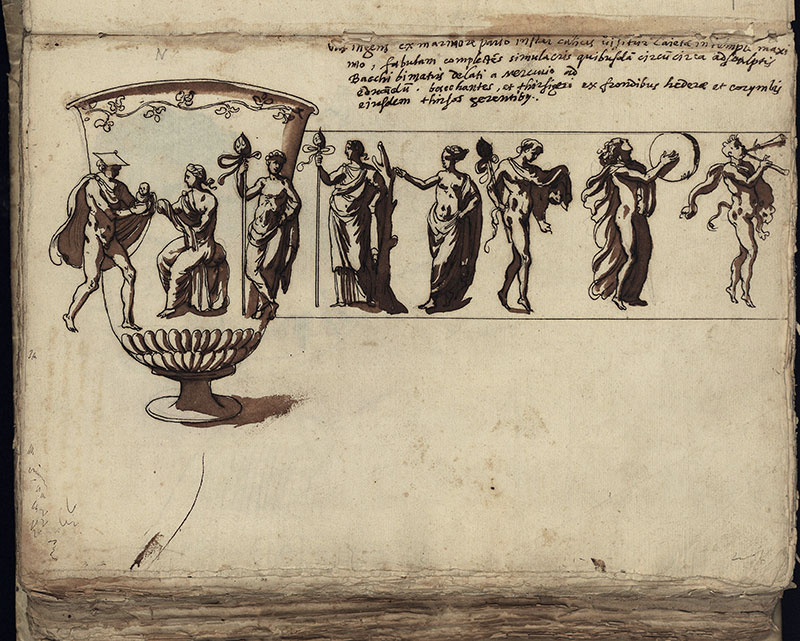 Vas ingens ex marmore pario instar calicis visitur Caietæ in templo maxi
mo, fabulam complectēs simulacris quibusdā circū circa adsculptis
Bacchi bimatris delati a Mercurio ad
educādū. bacchantes, et thirsigeri ex frondibus hederæ et corymbis
eiusdem thirsos gerentibus.
N